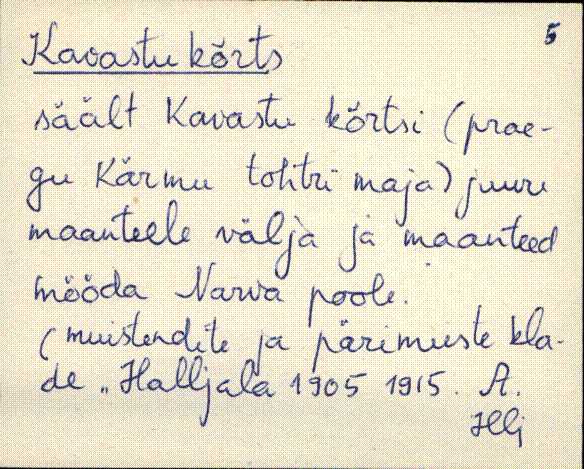 5
Kavastu kõrts
säält Kavastu kõrtsi (prae-
gu Kärmu tohtri maja) juure
maanteele välja ja maanteed
mööda Narva poole.
(muistendite ja pärimuste kla-
de „Halljala 1905 1915. A.
Hlj